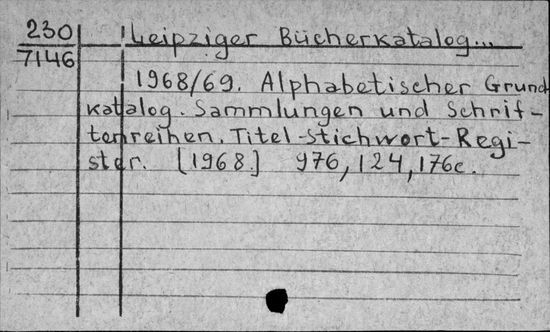 230 Leipziger Bücherkatalog...
7146
1968/69. Alphabetischer Grund
katalog. Sammlungen und Schrif-
tenreihen. Titel-Stichwort-Regi-
ster. [1968.] 976, 124, 176c.